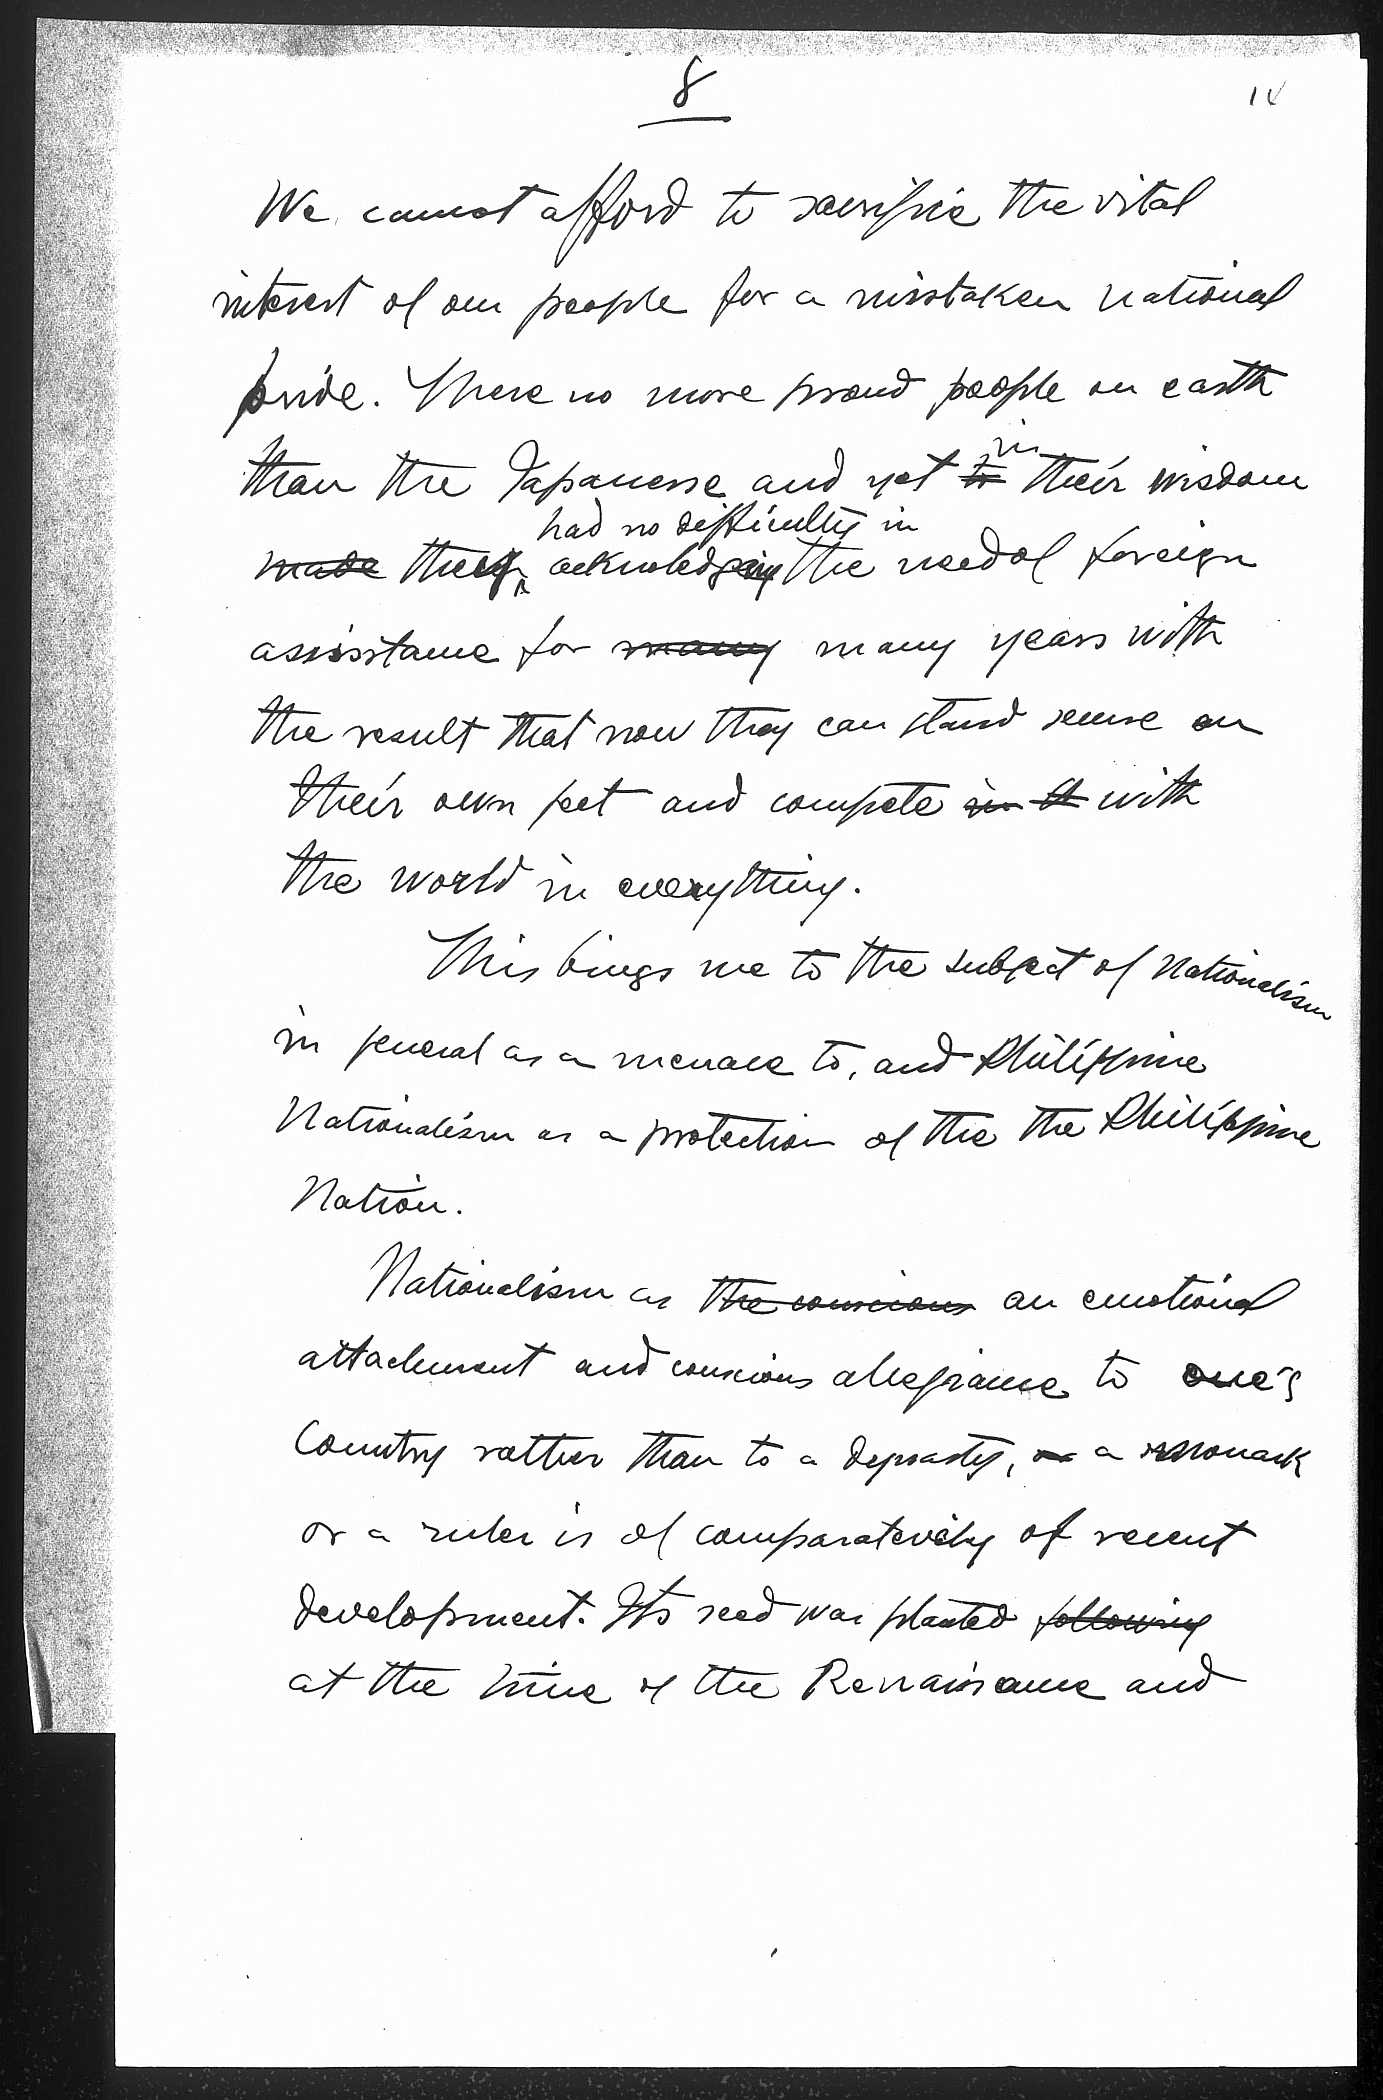 8
We cannot afford to sacrifice the vital
interest of our people for a mistaken national
pride. There no more proud people on earth
than the Japanese and yet to in their wisdom
made they had no difficulty in acknowledging the need of foreign
assisstance for many many years with
the result that now they can stand secure on
their own feet and compete in it with
the world in everything.
This bings me to the subject of Nationalism
in general as a menace to, and Philippine
Nationalism as a protection of the the Philippine
Nation.
Nationalism as the conscious an emotional
attachment and conscious allegiance to one's
Country rather than to a dynasty, or a monark
or a ruler is of comparatevely of recent
development. Its seed was planted following
at the time of the Renaissance and